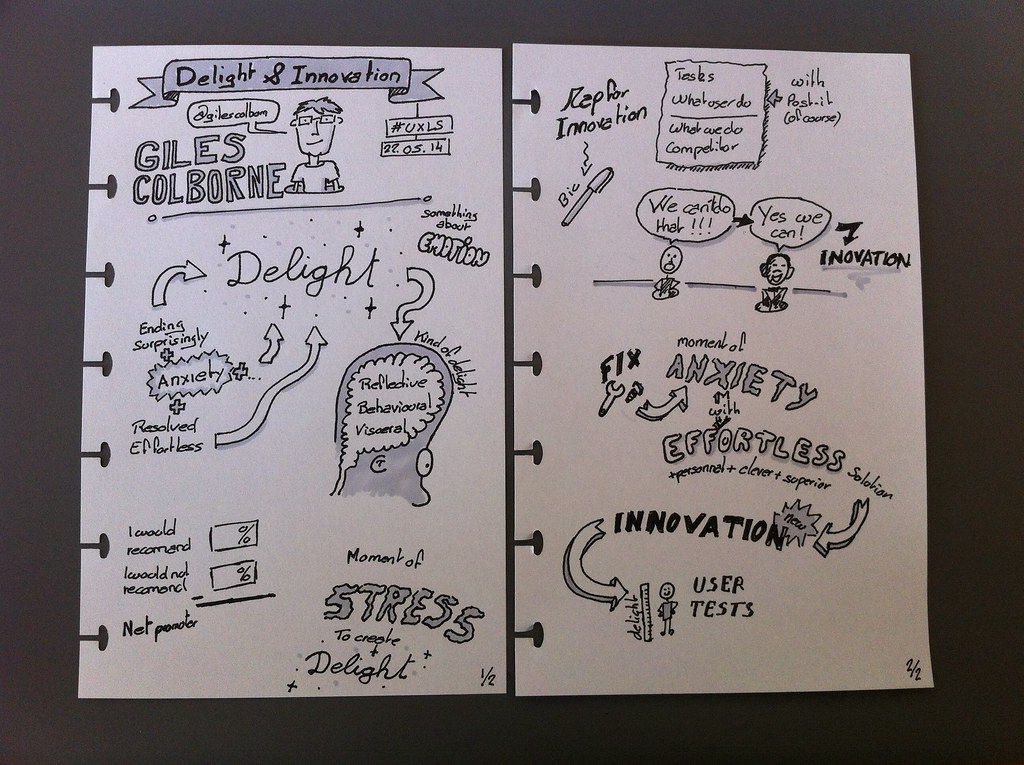 Delight & Innovation
@gilescolborn
GILES
COLBORNE
#UXLS
22.05.14
something
about
EMOTION
Delight
Ending
Surprisingly
+
Anxiety + ...
+
Resolved
Effortless
Kind of delight
Reflective
Behavioural
Visceral
I would
recomend
%
I would not
recomend
%
Net promoter
Moment of
STRESS
To create
Delight
1/2
Map for
Innovation
Tasks
What user do
What we do
Competitor
with
Post-it
(of course)
Bic
We can't do
that !!!
Yes we
can!
INOVATION
FIX
moment of
ANXIETY
with
EFFORTLESS
solution
+personnal + clever + superior
INNOVATION
new
delight
USER
TESTS
2/2